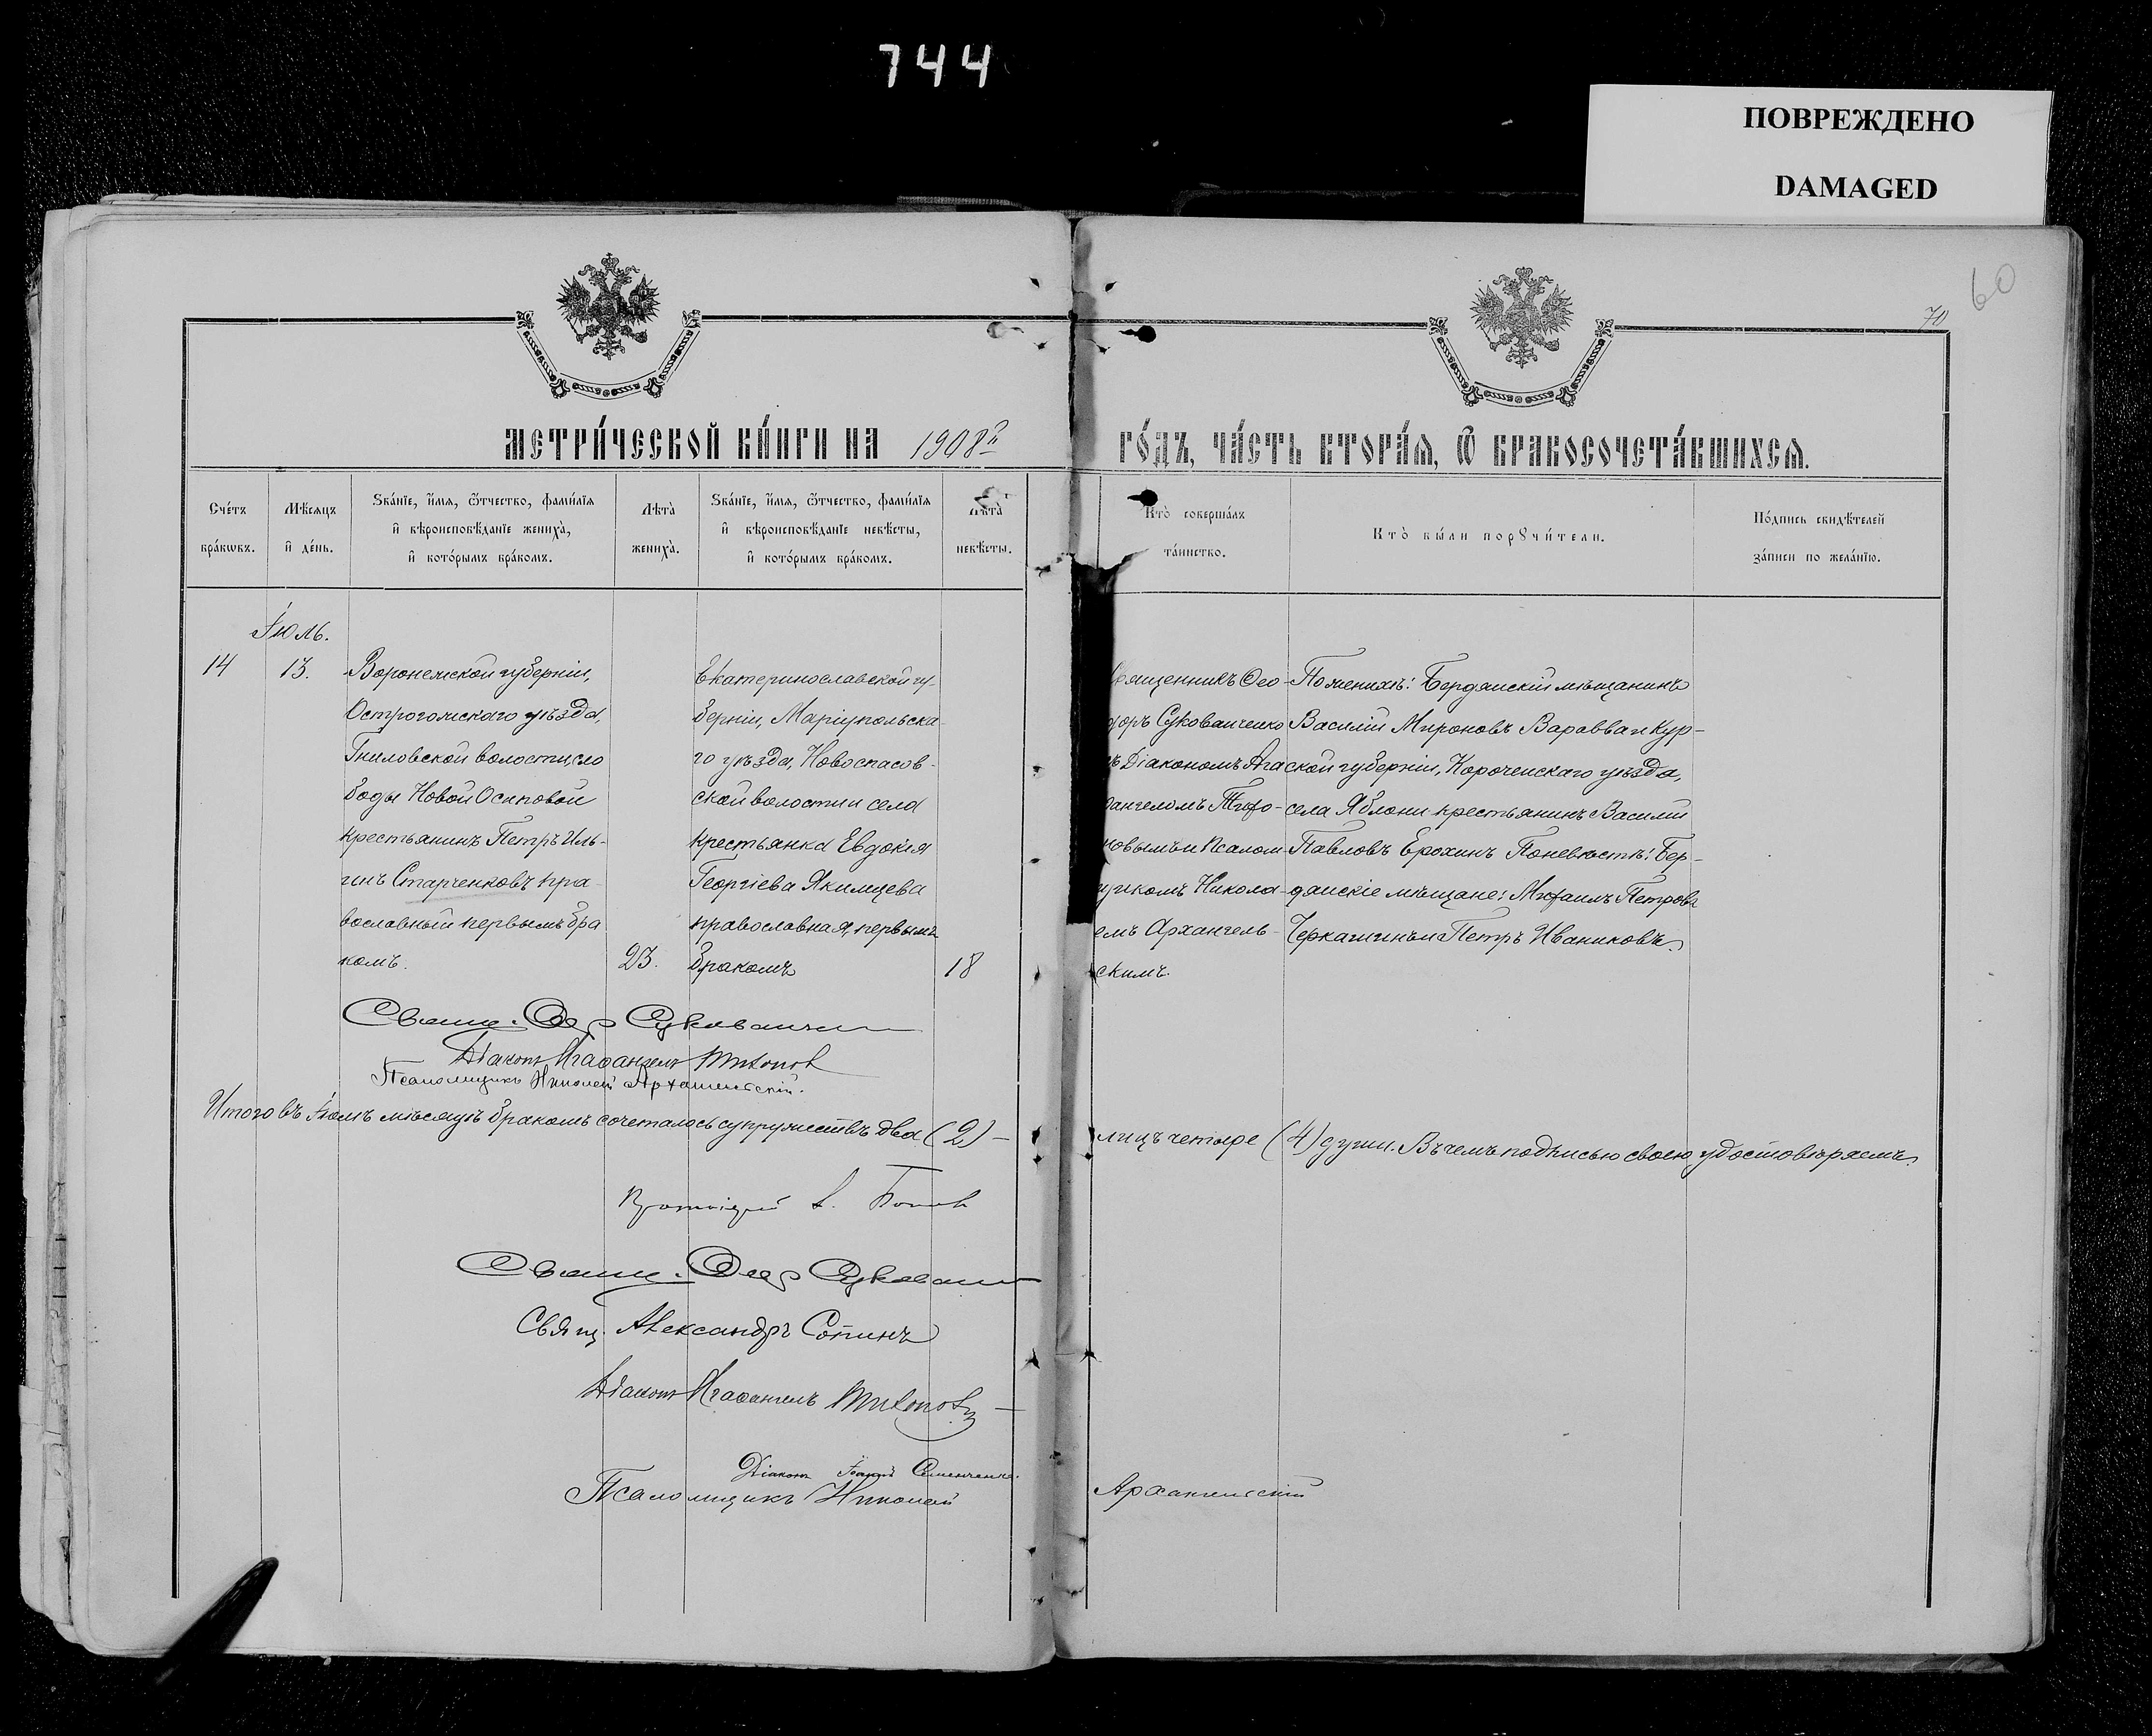 744
ПОВРЕЖДЕНО
DAMAGED
60
70
МЕТРИ́ЧЕСКОЙ КНИ́ГИ НА 1908й
ГО́ДЪ, ЧА́СТЬ ВТОРА́Я, Ѿ БРАКОСОЧЕТА́ВШИХСЯ.
Сче́тъ бра́кѡвъ.
Мѣ́сяцъ и҆ де́нь.
Ѕва́нїе, и҆́мя, ѻ҆́тчество, фами́лїя
и҆ вѣроисповѣ́данїе жениха̀,
и҆ кото́рымъ бра́комъ.
Лѣта̀ жениха̀.
Ѕва́нїе, и҆́мя, ѻ҆́тчество, фами́лїя
и҆ вѣроисповѣ́данїе невѣ́сты,
и҆ кото́рымъ бра́комъ.
Лѣта̀ невѣ́сты.
Кто̀ соверша́лъ
та́инство.
Кто̀ бы́ли порꙋчи́тели.
По́дпись свидѣ́телей
за́писи по жела́нїю.
Іюль.
14
13.
Воронежской губерніи,
Острогожскаго уѣзда,
Гниловской волости, сло
боды Новой Осиповой
крестьянинъ Петръ Иль-
инъ Старченковъ пра-
вославный первымъ бра
комъ.
23.
Екатеринославской гу-
берніи, Маріупольска
го уѣзда, Новоспасов-
ской волости и села
крестьянка Евдокія
Георгіева Якимцева
православная, первымъ
бракомъ
18
Священникъ Ѳео-
доръ Сукованченко
съ Діакономъ Ага
ѳангеломъ Тихо-
новымъ и Псалом-
щикомъ Никола-
емъ Архангель-
скимъ.
По женихѣ: Бердянскій мѣщанинъ
Василій Мироновъ Варавва и Кур-
ской губерніи, Корочепскаго уѣзда,
села Яблони крестьянинъ Василій
Павловъ Ерохинъ По невѣстѣ: Бер-
дянскіе мѣщане: Михаилъ Петровъ
Черкашинъ и Петръ Иваниковъ.
Свящ. Ѳеод Сукованчен
Діаконъ Агаѳангелъ Тихоновъ
Псаломщикъ Николай Архангельскій.
Итого въ Іюлѣ мѣсяцѣ бракомъ сочеталось супружествъ два (2) —
лицъ четыре (4) души. Въ чемъ подписью своею удостовѣряемъ.
Протоіерей Попов
Свящ. Ѳеод Сукован
Свящ. Александръ Сопинъ
Діаконъ Агаѳангелъ Тихоновъ —
Діаконъ Семенченко.
Псаломщикъ Николай Архангельскій